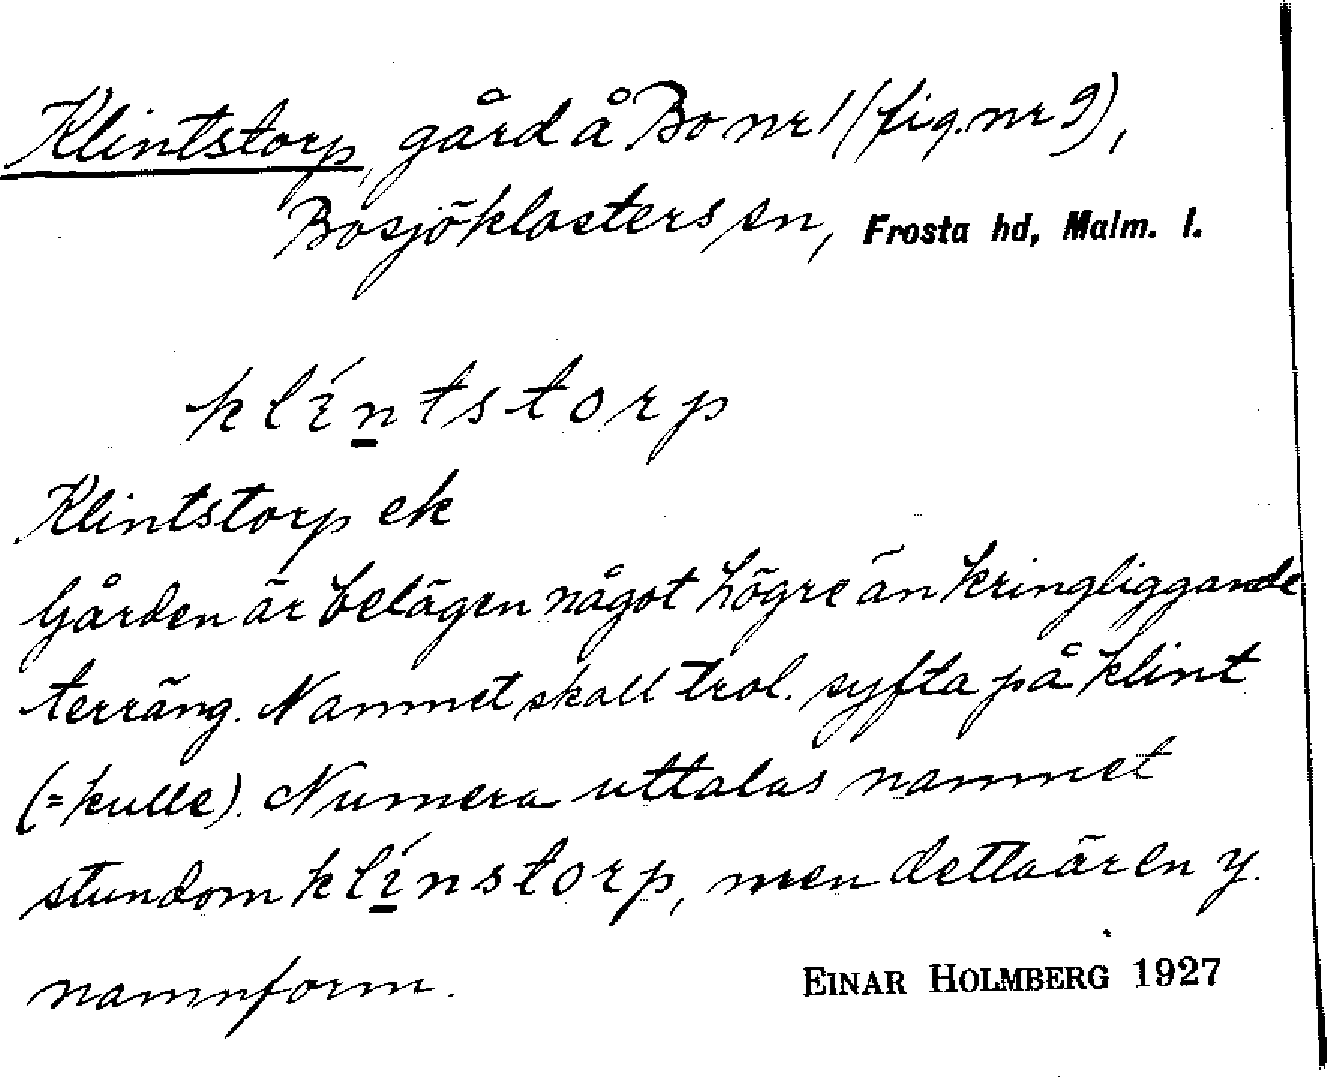 Klintstorp, gård å Bo nr 1 (fig. nr 9),
Bosjöklosters sn, Frosta hd, Malm. l.
klíntstorp
Klintstorp ek
Gården är belägen något högre än kringliggande
terräng. Namnet skall trol. syfta på klint
(= kulle). Numera uttalas namnet
stundom klínstorp, men detta är en y.
namnform.
EINAR HOLMBERG 1927